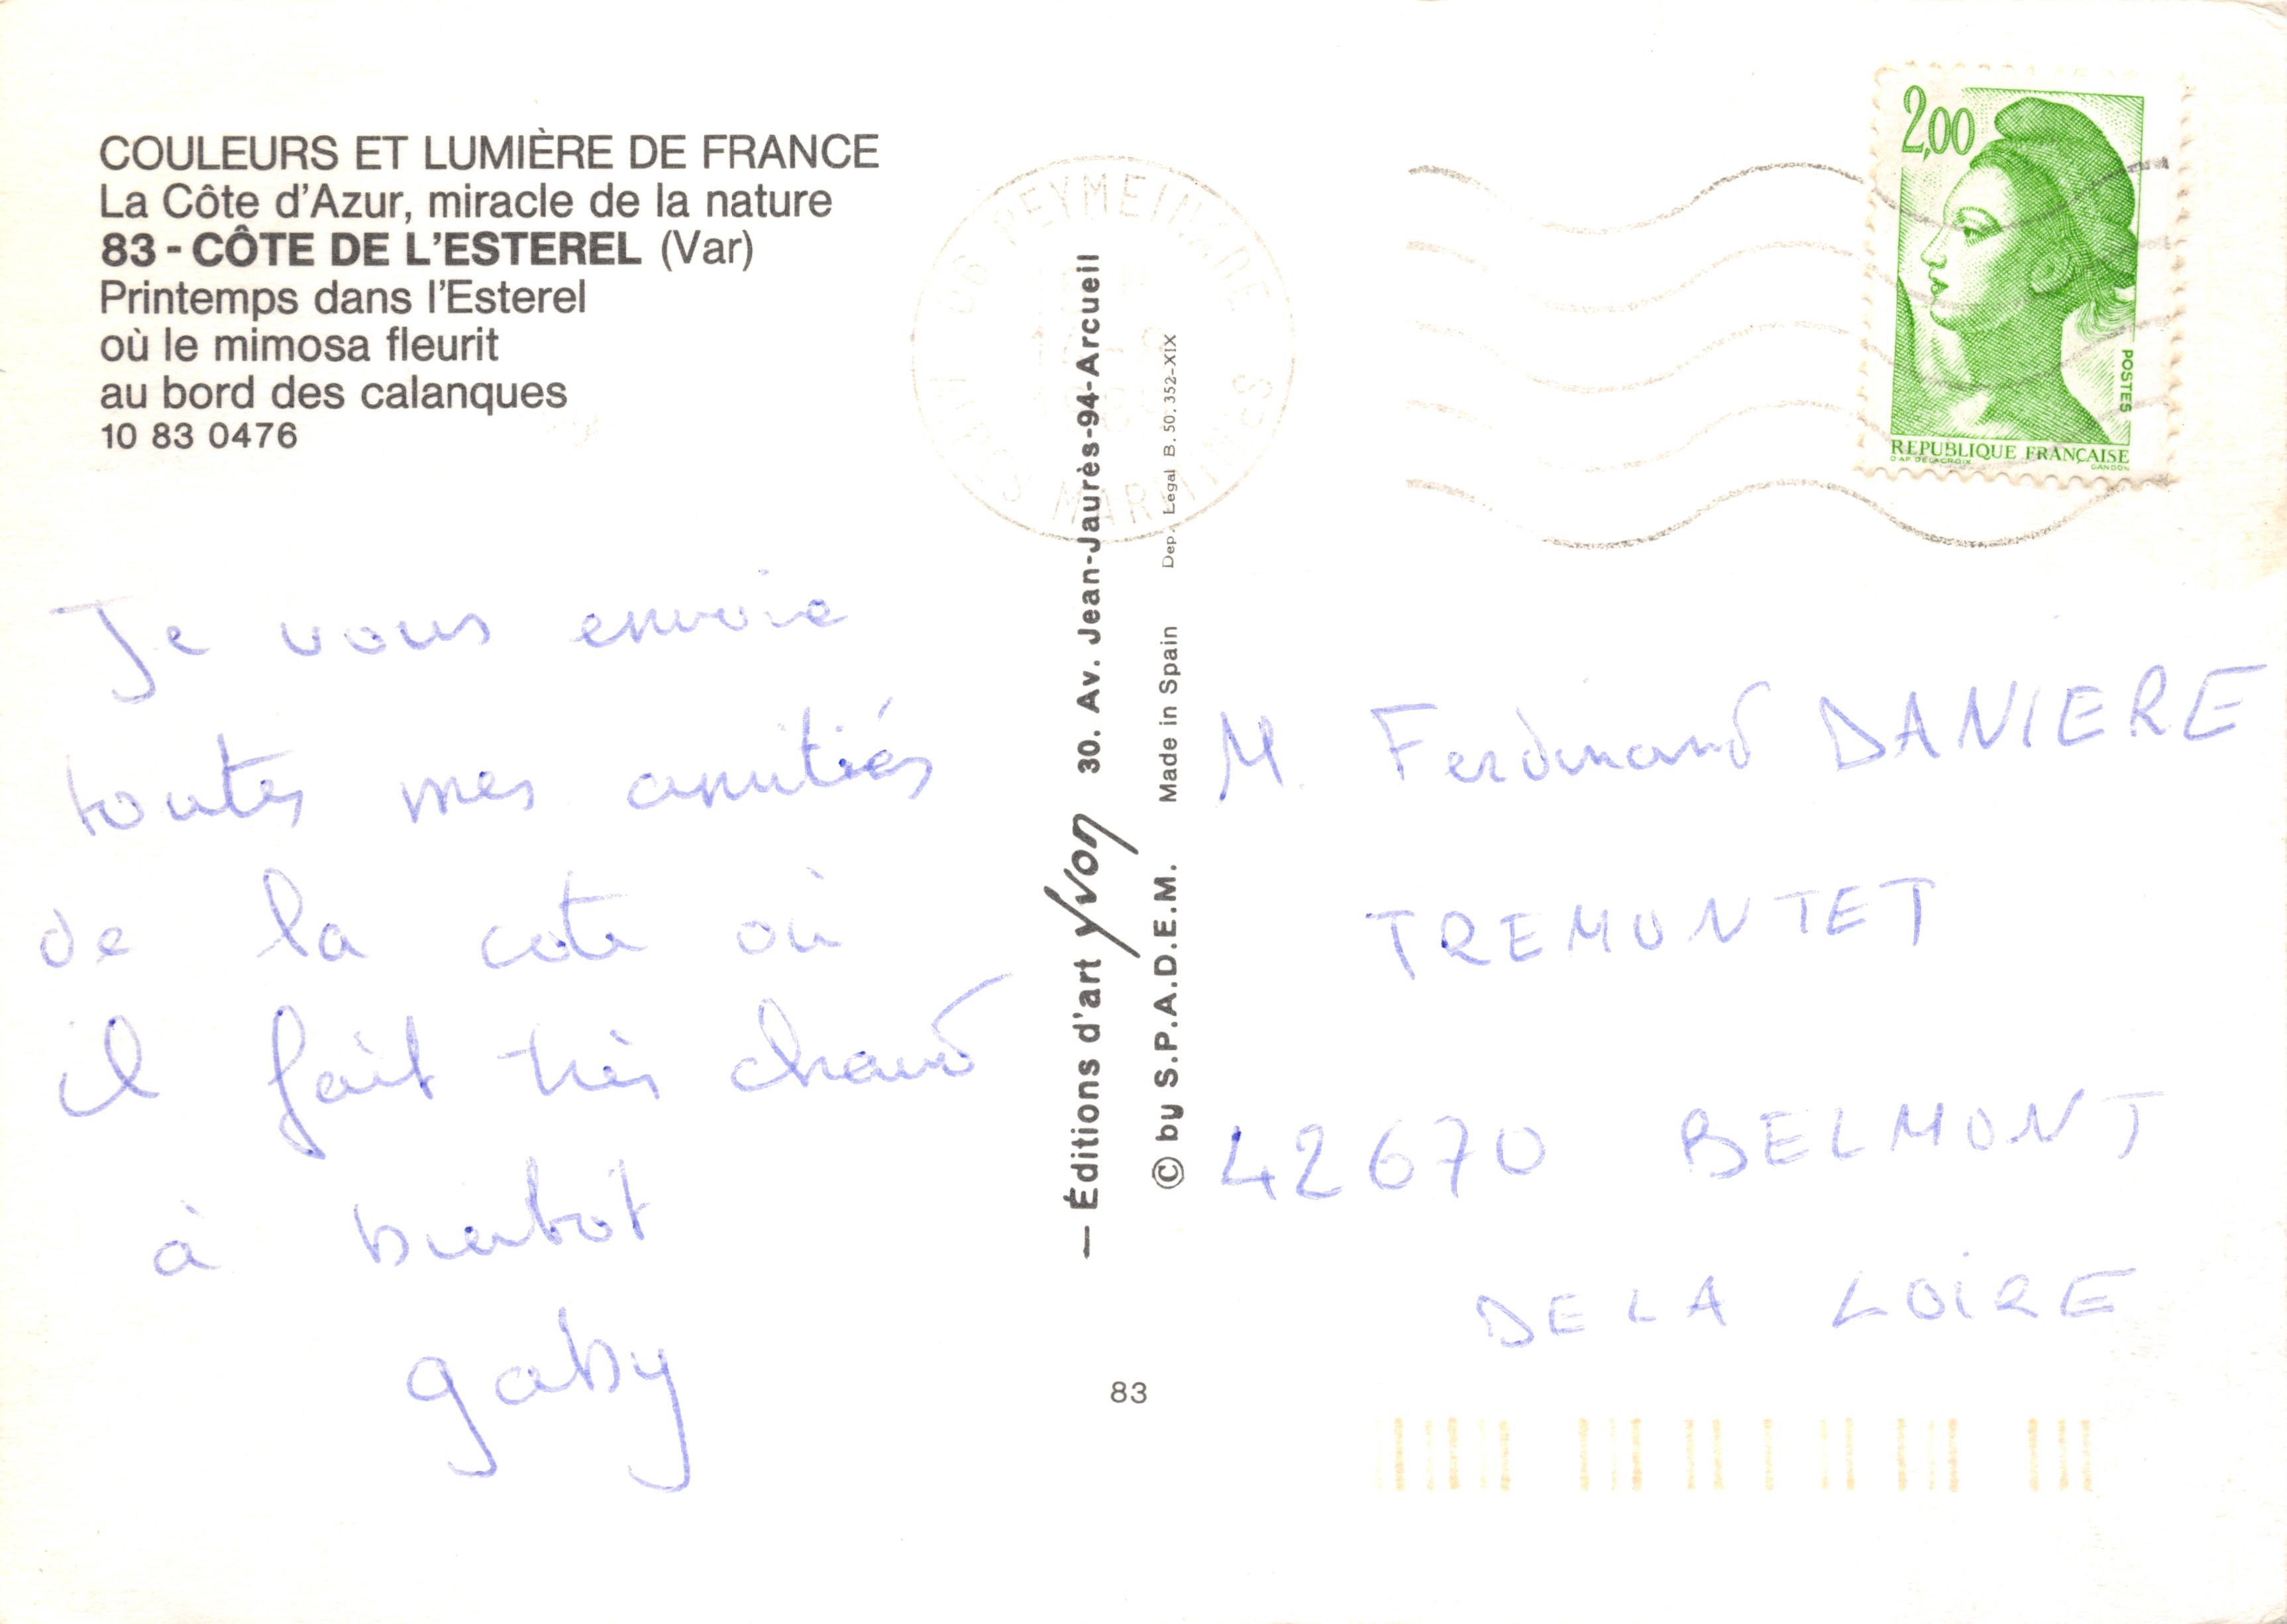 COULEURS ET LUMIÈRE DE FRANCE
La Côte d'Azur, miracle de la nature
83 - CÔTE DE L'ESTEREL (Var)
Printemps dans l'Esterel
où le mimosa fleurit
au bord des calanques
10 83 0476
06 PEYMEINADE
ALPES MARITIMES
2,00
POSTES
REPUBLIQUE FRANÇAISE
D'AP. DELACROIX
GANDON
Je vous envoie
toutes mes amitiés
de la cote où
il fait très chaud
à bientot
gaby
— Éditions d'art Yvon 30. Av. Jean-Jaurès-94-Arcueil
© by S.P.A.D.E.M. Made in Spain Dep. Legal B. 50.352-XIX
83
M. Ferdinand DANIERE
TREMONTET
42670 BELMONT
DE LA LOIRE